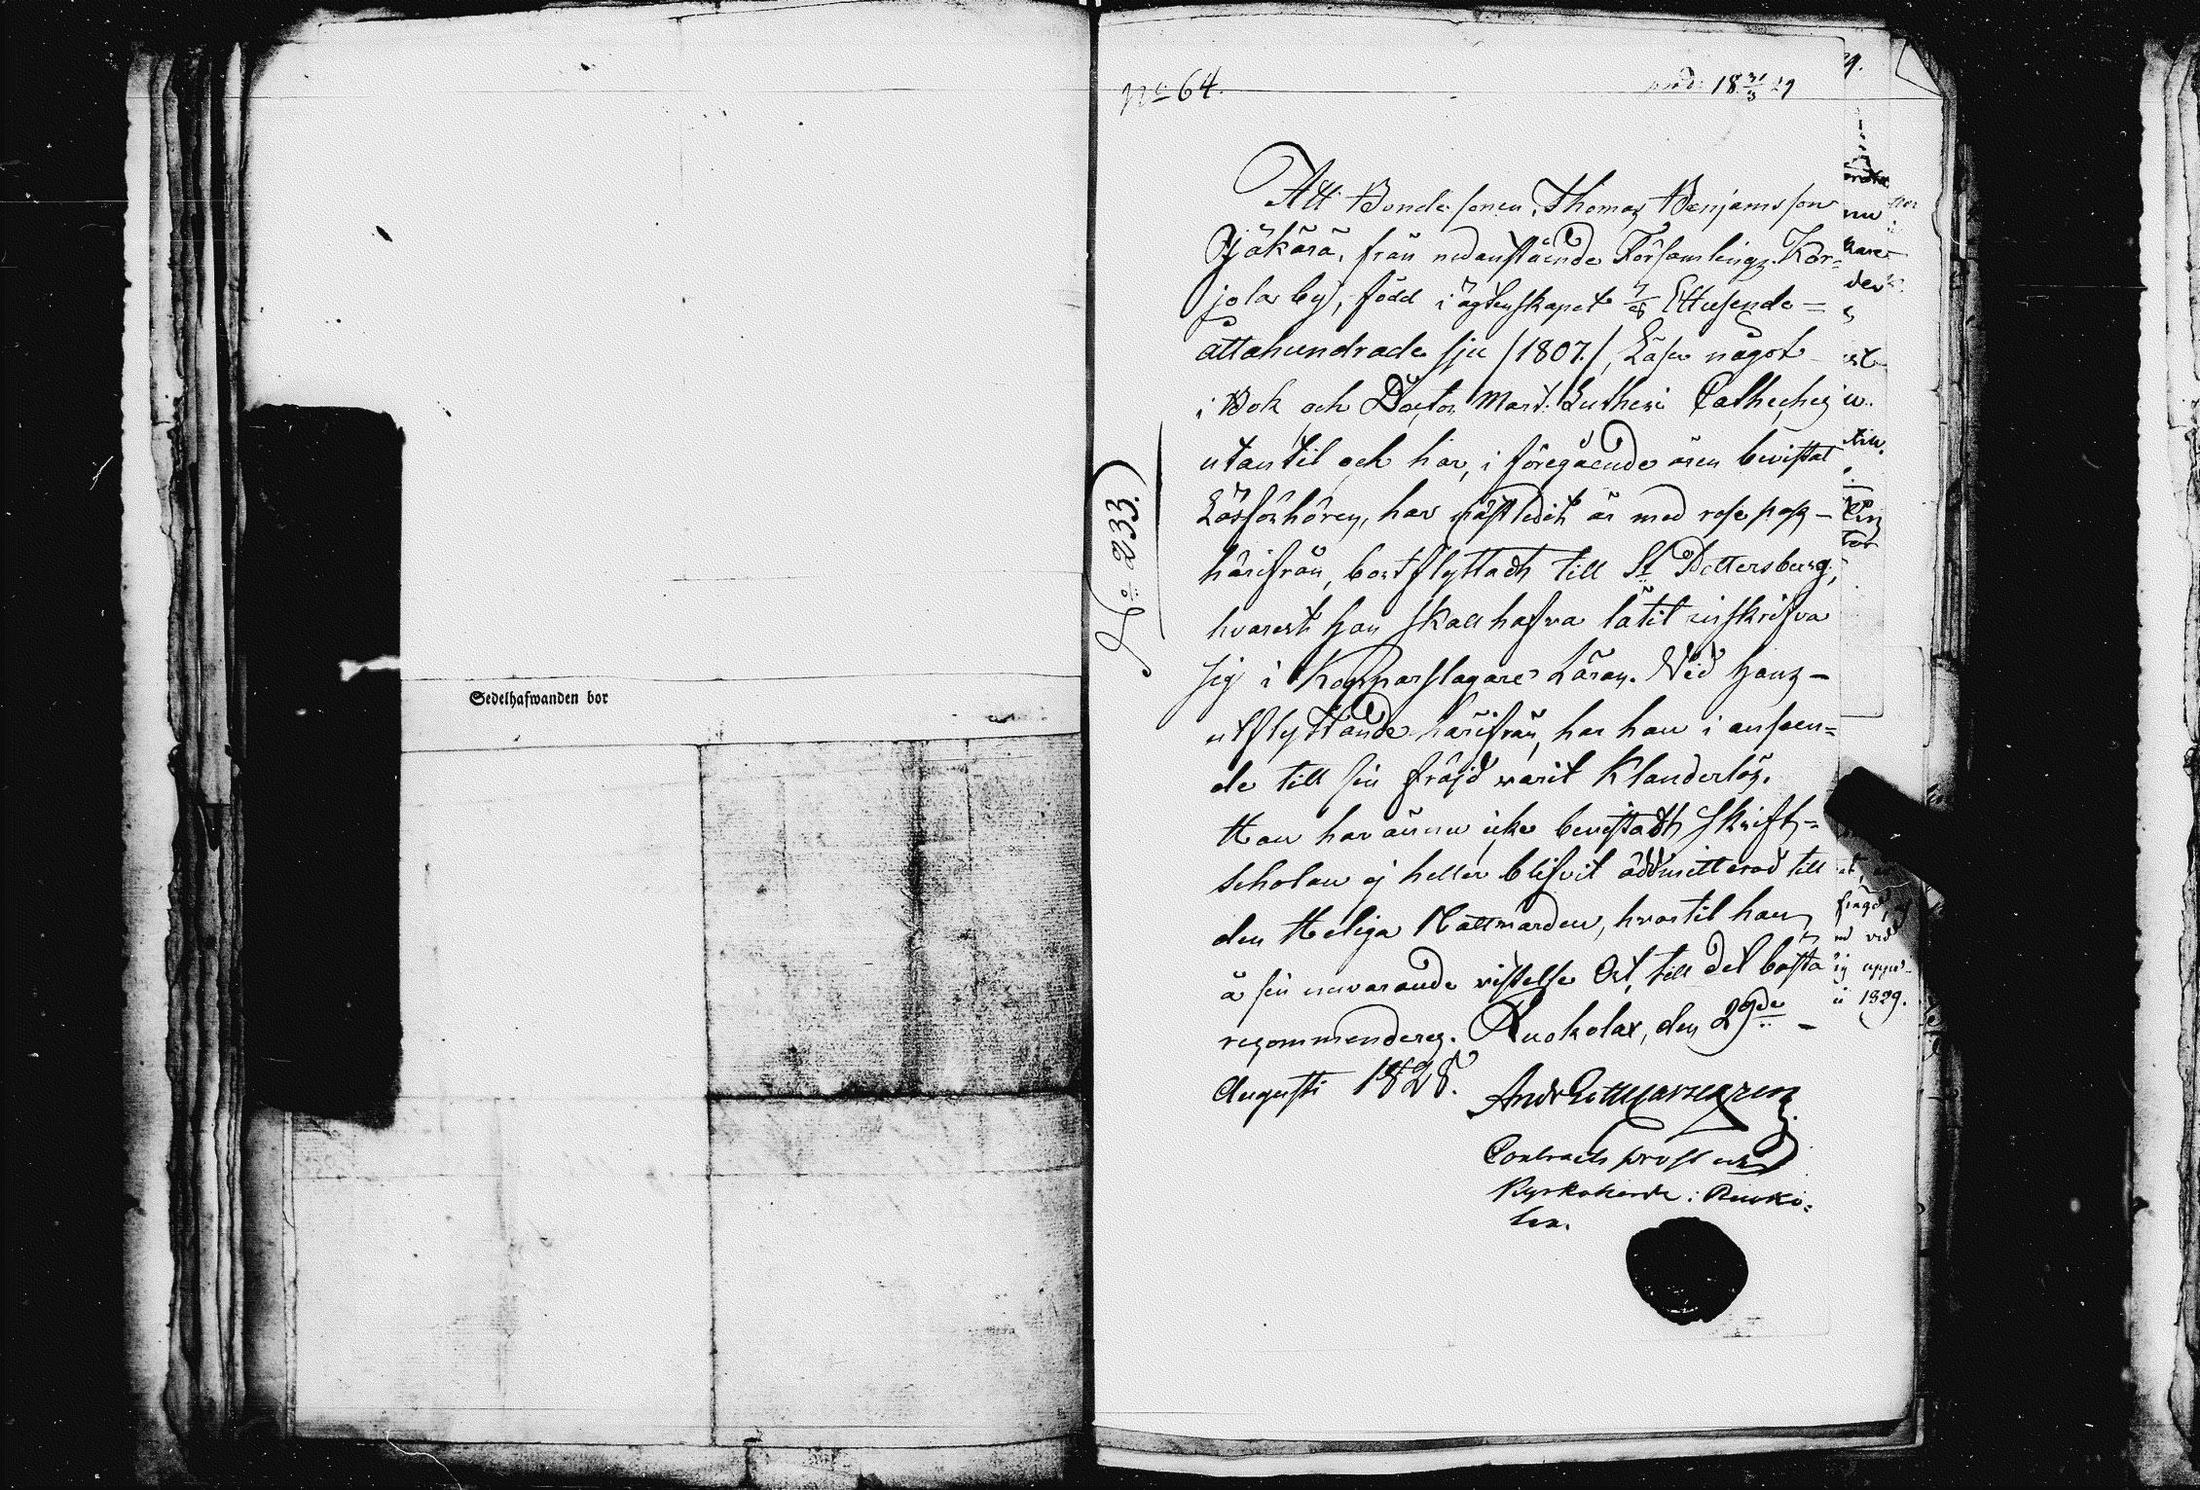 Sedelhafwanden bor
No 64.
prod: 18 31/3 29
No 233.
Att Bondesonen, Thomas Benjamsson
Jäkärä, från nedanstående Församlings Kär-
jola by, född i ägtenskapet 7/8 Ettusende=
åttahundrade sju /1807./, Läser något
i Bok och Doctor Mart: Lutheri Catheches
utantil och har, i föregående åren bevistat
Läsförhören, har sistledit år med rese pass
härifrån, bortflyttadt till St Pettersburg,
hvarest han skall hafva låtit inskrifva
sig i Kopparslagare Läran. Vid hans
utflyttande härifrån, har han i anseen=
de till sin fräjd varit Klanderlös.
Han har ännu icke bevistadt Skrift=
scholan ej heller blifvit admitterad till
den Heliga Nattvarden, hvartil han
å sin nuvarande vistelse Ort, till det bästa
recommenderes. Ruokolax, den 29de
Augusti 1828.
Contracts prost och
Kyrkoherde i Ruoko=
lax.
ig uppå
1829.